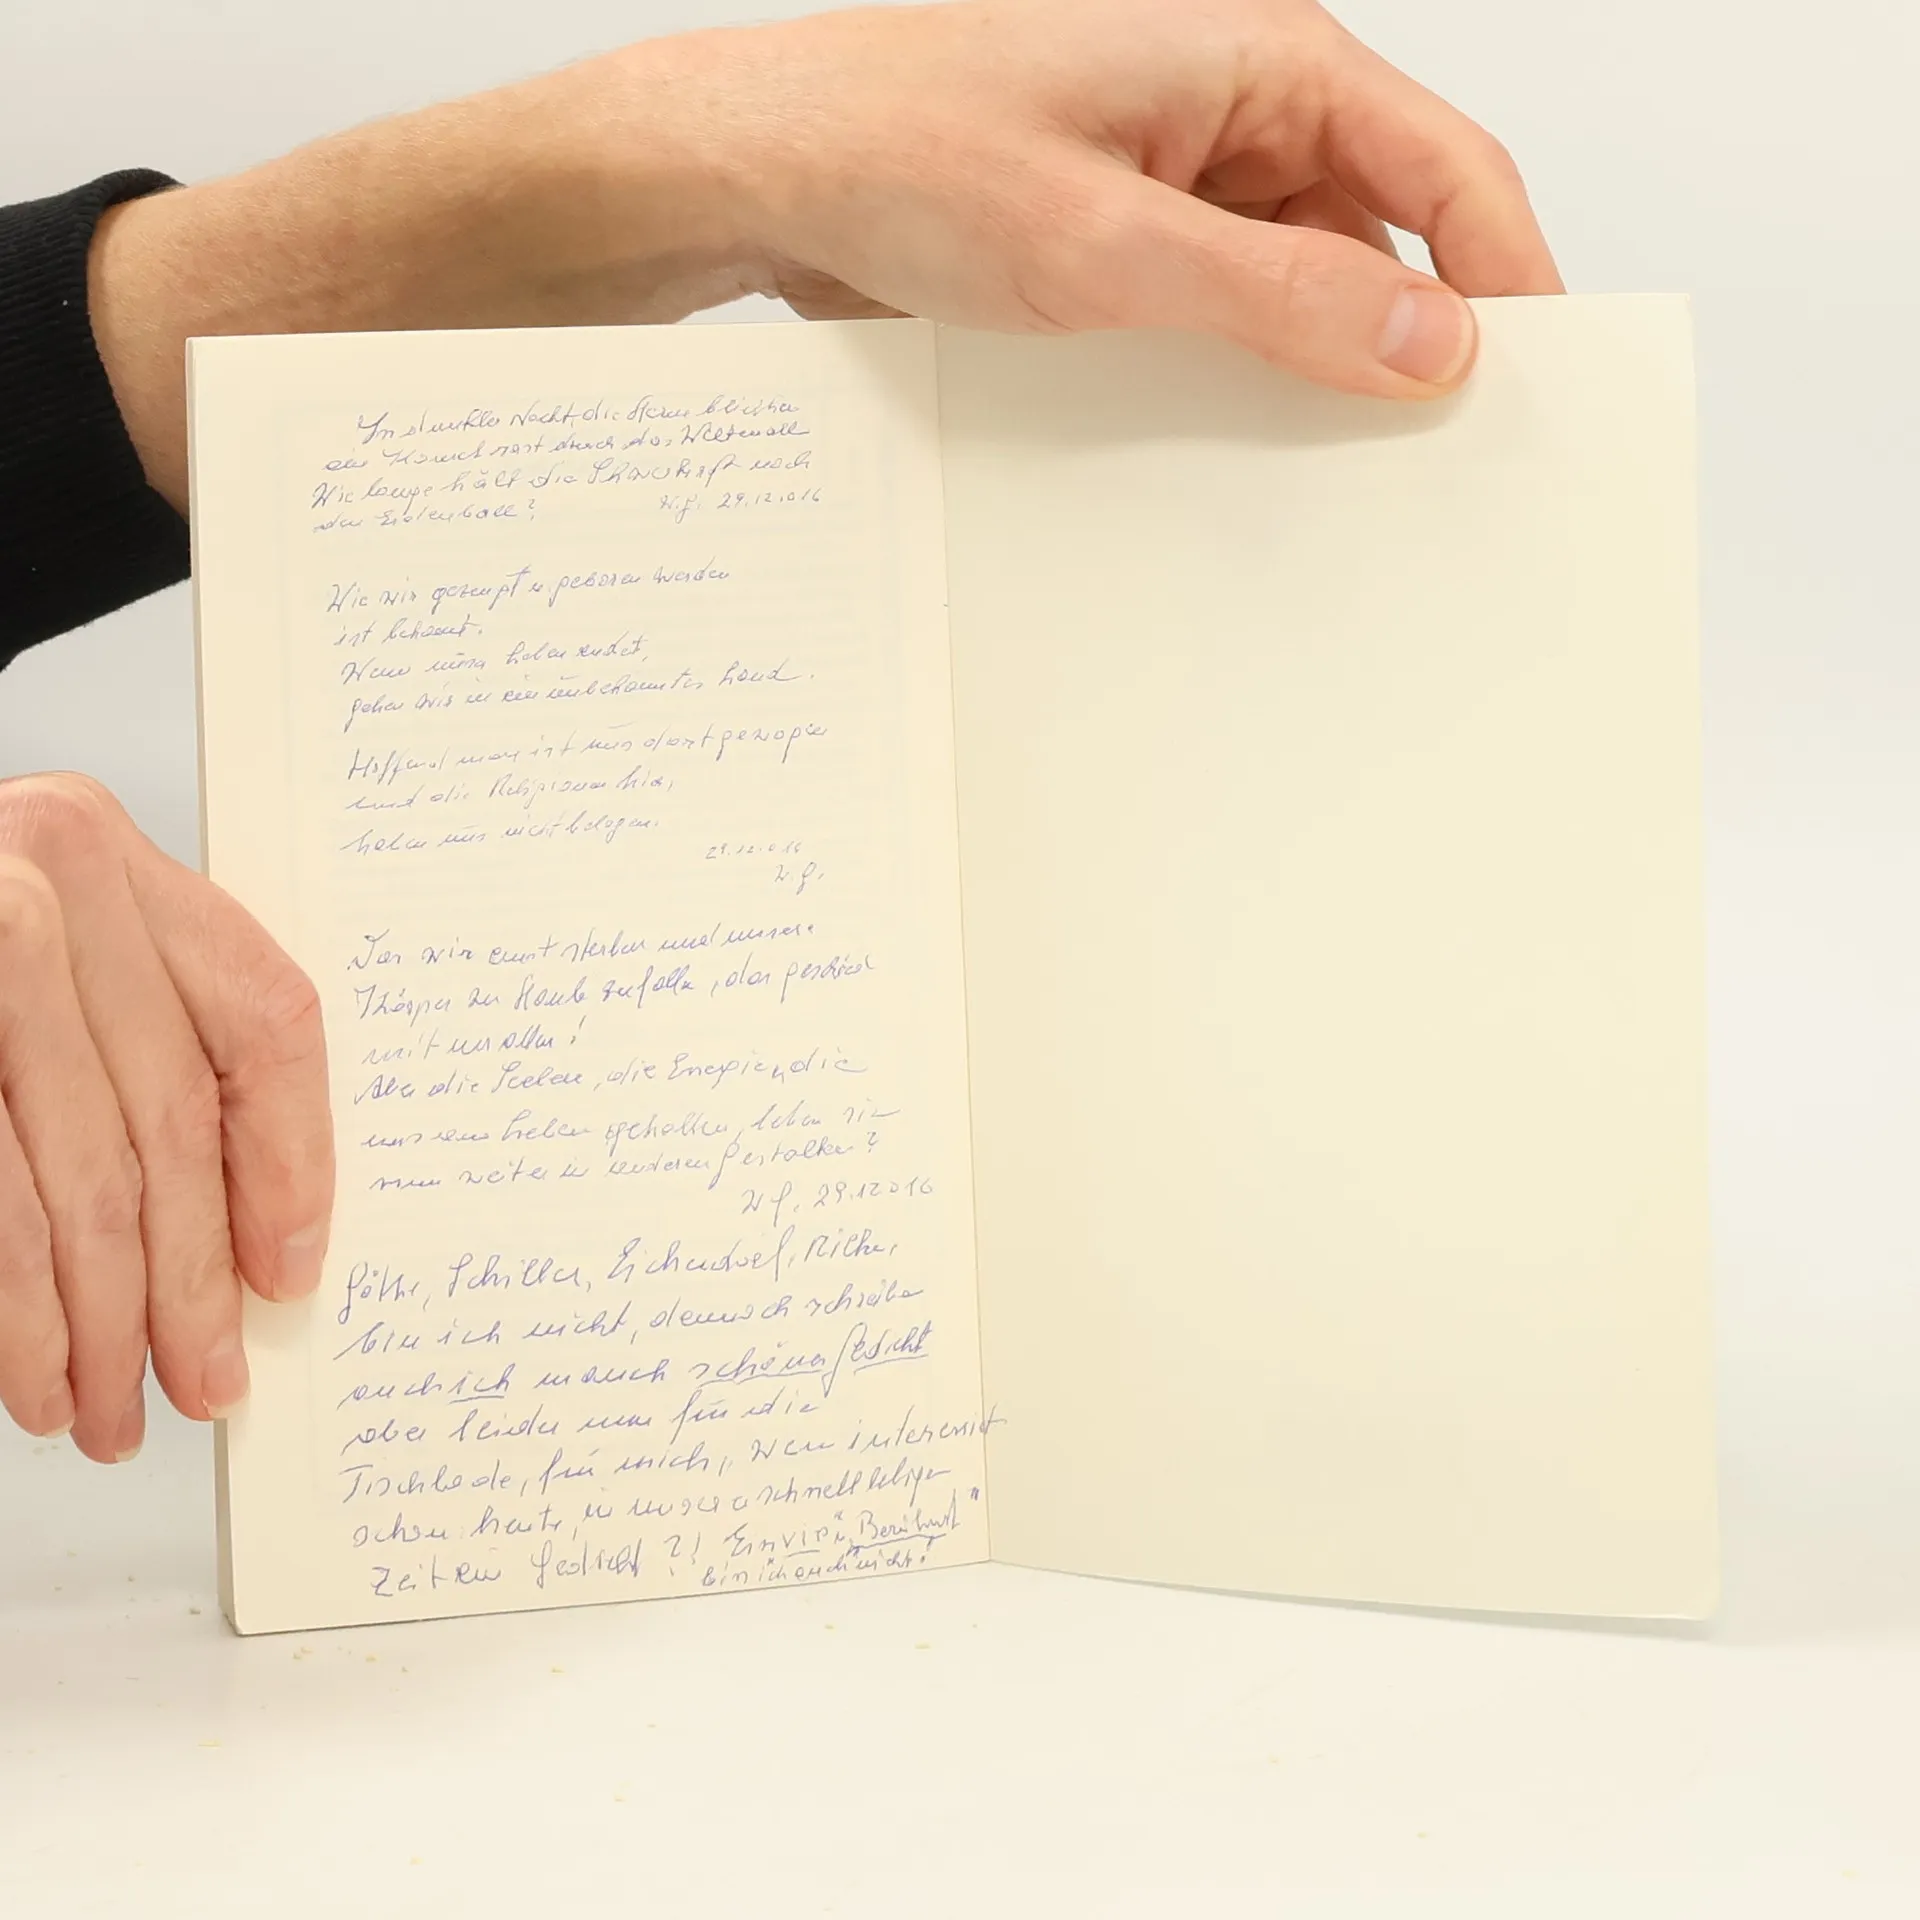 In dunkler Nacht, die Sterne bleichen
ein Komet rast durch das Weltenall
Wie lange hält die Schwerkraft noch
den Erdenball? W.G. 29.12.016
Wie wir gezeugt u. geboren werden
ist bekannt.
Wenn unser Leben endet,
gehen wir in ein unbekanntes Land.
Hoffend man ist uns dort gewogen
und die Religionen hier,
haben uns nicht belogen.
29.12.016
W.G.
Das wir einst sterben und unsere
Körper zu Staub zerfallen, das geschied
mit uns allen!
Aber die Seelen, die Energien, die
unser Leben gehalten, leben sie
nun weiter in anderen Gestalten?
W.G. 29.12016
Göthe, Schiller, Eichendorf, Rilke,
bin ich nicht, dennoch schreibe
auch ich manch schönes Gedicht
aber leider nur für die
Tischlade, für mich, wen interessiert
schon heute, in unserer schnelllebigen
Zeit ein Gedicht?! "Berühmt"
bin ich auch nicht!